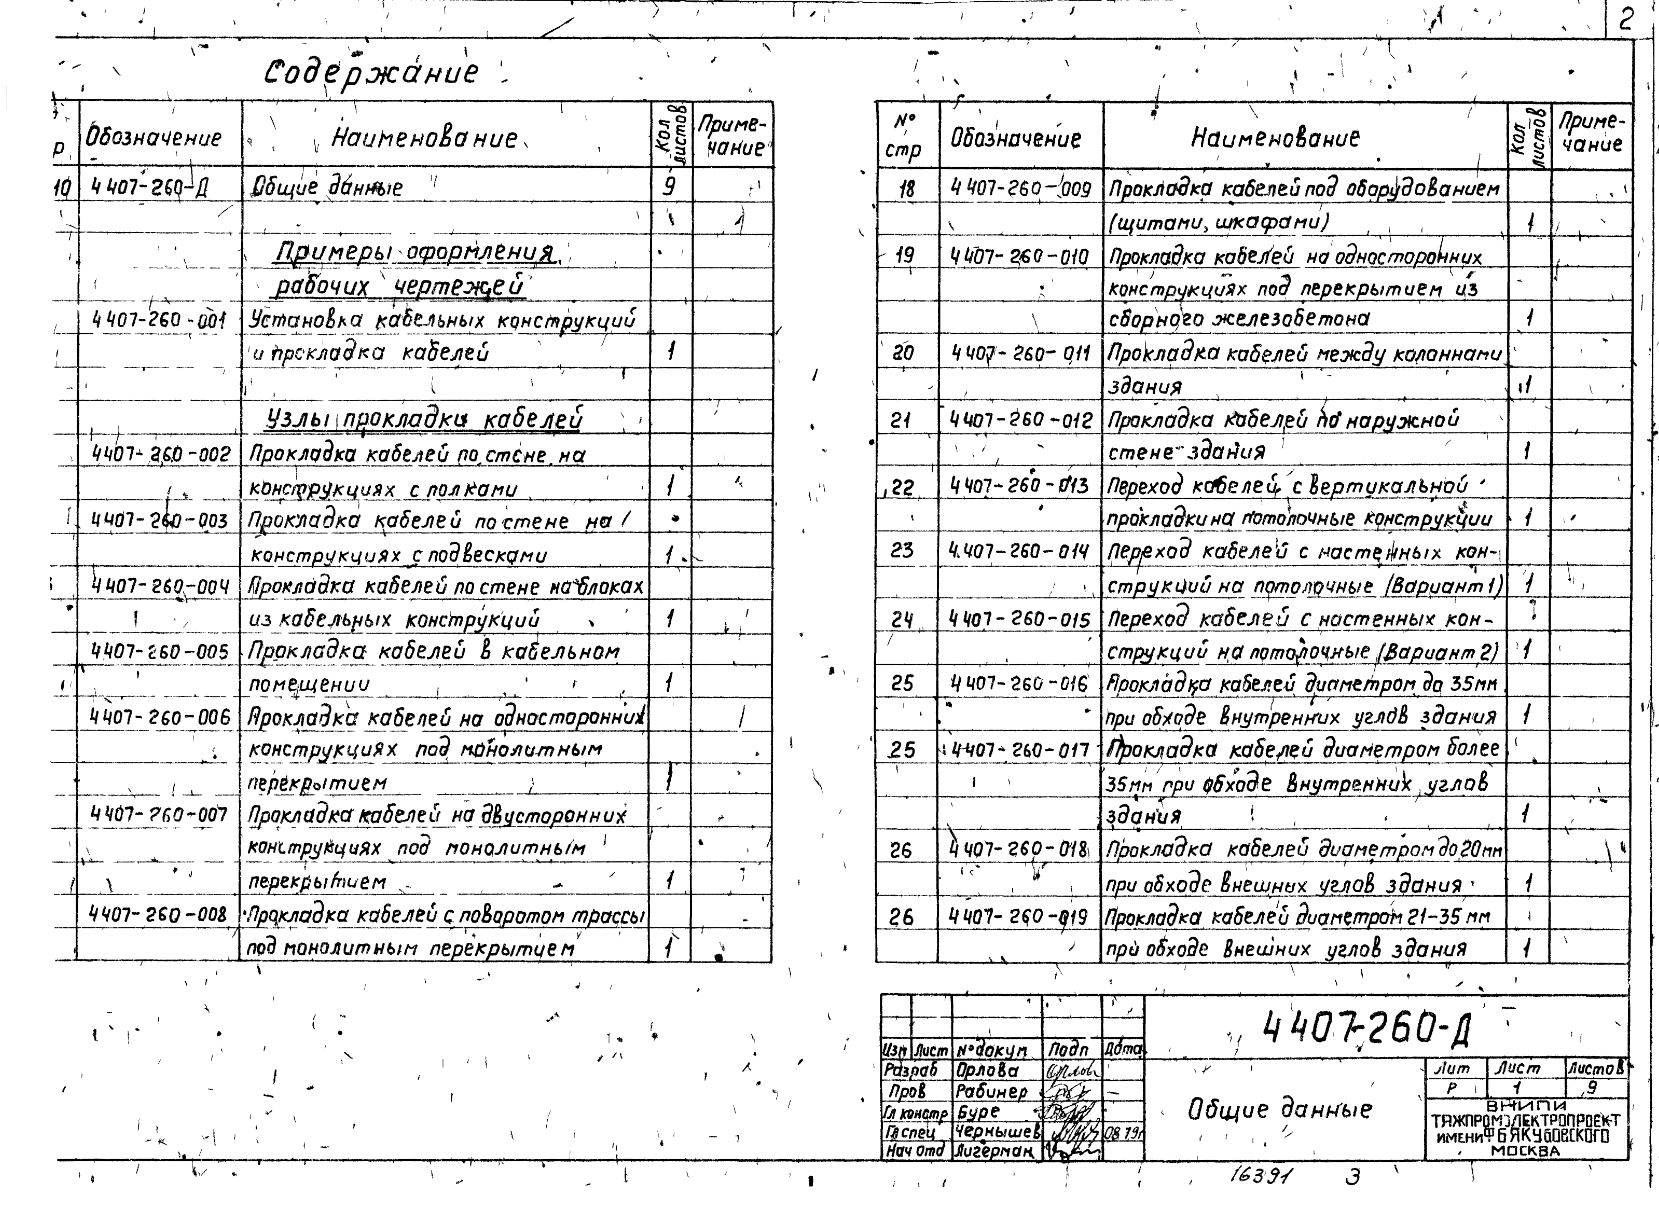 2
Содержание
р Обозначение Наименование Кол листов Приме-
чание
10 4407-260-Д Общие данные 9
Примеры оформления
рабочих чертежей
4407-260-001 Установка кабельных конструкций
и прокладка кабелей 1
Узлы прокладки кабелей
4407-260-002 Прокладка кабелей по стене на
конструкциях с полками 1
4407-260-003 Прокладка кабелей по стене на
конструкциях с подвесками 1
4407-260-004 Прокладка кабелей по стене на блоках
из кабельных конструкций 1
4407-260-005 Прокладка кабелей в кабельном
помещении 1
4407-260-006 Прокладка кабелей на односторонних
конструкциях под монолитным
перекрытием 1
4407-260-007 Прокладка кабелей на двусторонних
конструкциях под монолитным
перекрытием 1
4407-260-008 Прокладка кабелей с поворотом трассы
под монолитным перекрытием 1
№
стр Обозначение Наименование Кол листов Приме-
чание
18 4407-260-009 Прокладка кабелей под оборудованием
(щитами, шкафами) 1
19 4407-260-010 Прокладка кабелей на односторонних
конструкциях под перекрытием из
сборного железобетона 1
20 4407-260-011 Прокладка кабелей между колоннами
здания 1
21 4407-260-012 Прокладка кабелей по наружной
стене здания 1
22 4407-260-013 Переход кабелей с вертикальной
прокладки на потолочные конструкции 1
23 4.407-260-014 Переход кабелей с настенных кон-
струкций на потолочные (Вариант 1) 1
24 4407-260-015 Переход кабелей с настенных кон-
струкций на потолочные (Вариант 2) 1
25 4407-260-016 Прокладка кабелей диаметром до 35мм
при обходе внутренних углов здания 1
25 4407-260-017 Прокладка кабелей диаметром более
35мм при обходе внутренних углов
здания 1
26 4407-260-018 Прокладка кабелей диаметром до 20мм
при обходе внешних углов здания 1
26 4407-260-019 Прокладка кабелей диаметром 21-35 мм
при обходе внешних углов здания 1
4407-260-Д
Изм Лист № докум Подп Дата
Разраб Орлова Орлов
Пров Рабинер
Гл констр Буре
Гл спец Чернышев 08 79г
Нач отд Лигерман
Общие данные
Лит Лист Листов
Р 1 9
ВНИПИ
ТЯЖПРОМЭЛЕКТРОПРОЕКТ
ИМЕНИ Ф Б ЯКУБОВСКОГО
МОСКВА
16391 3